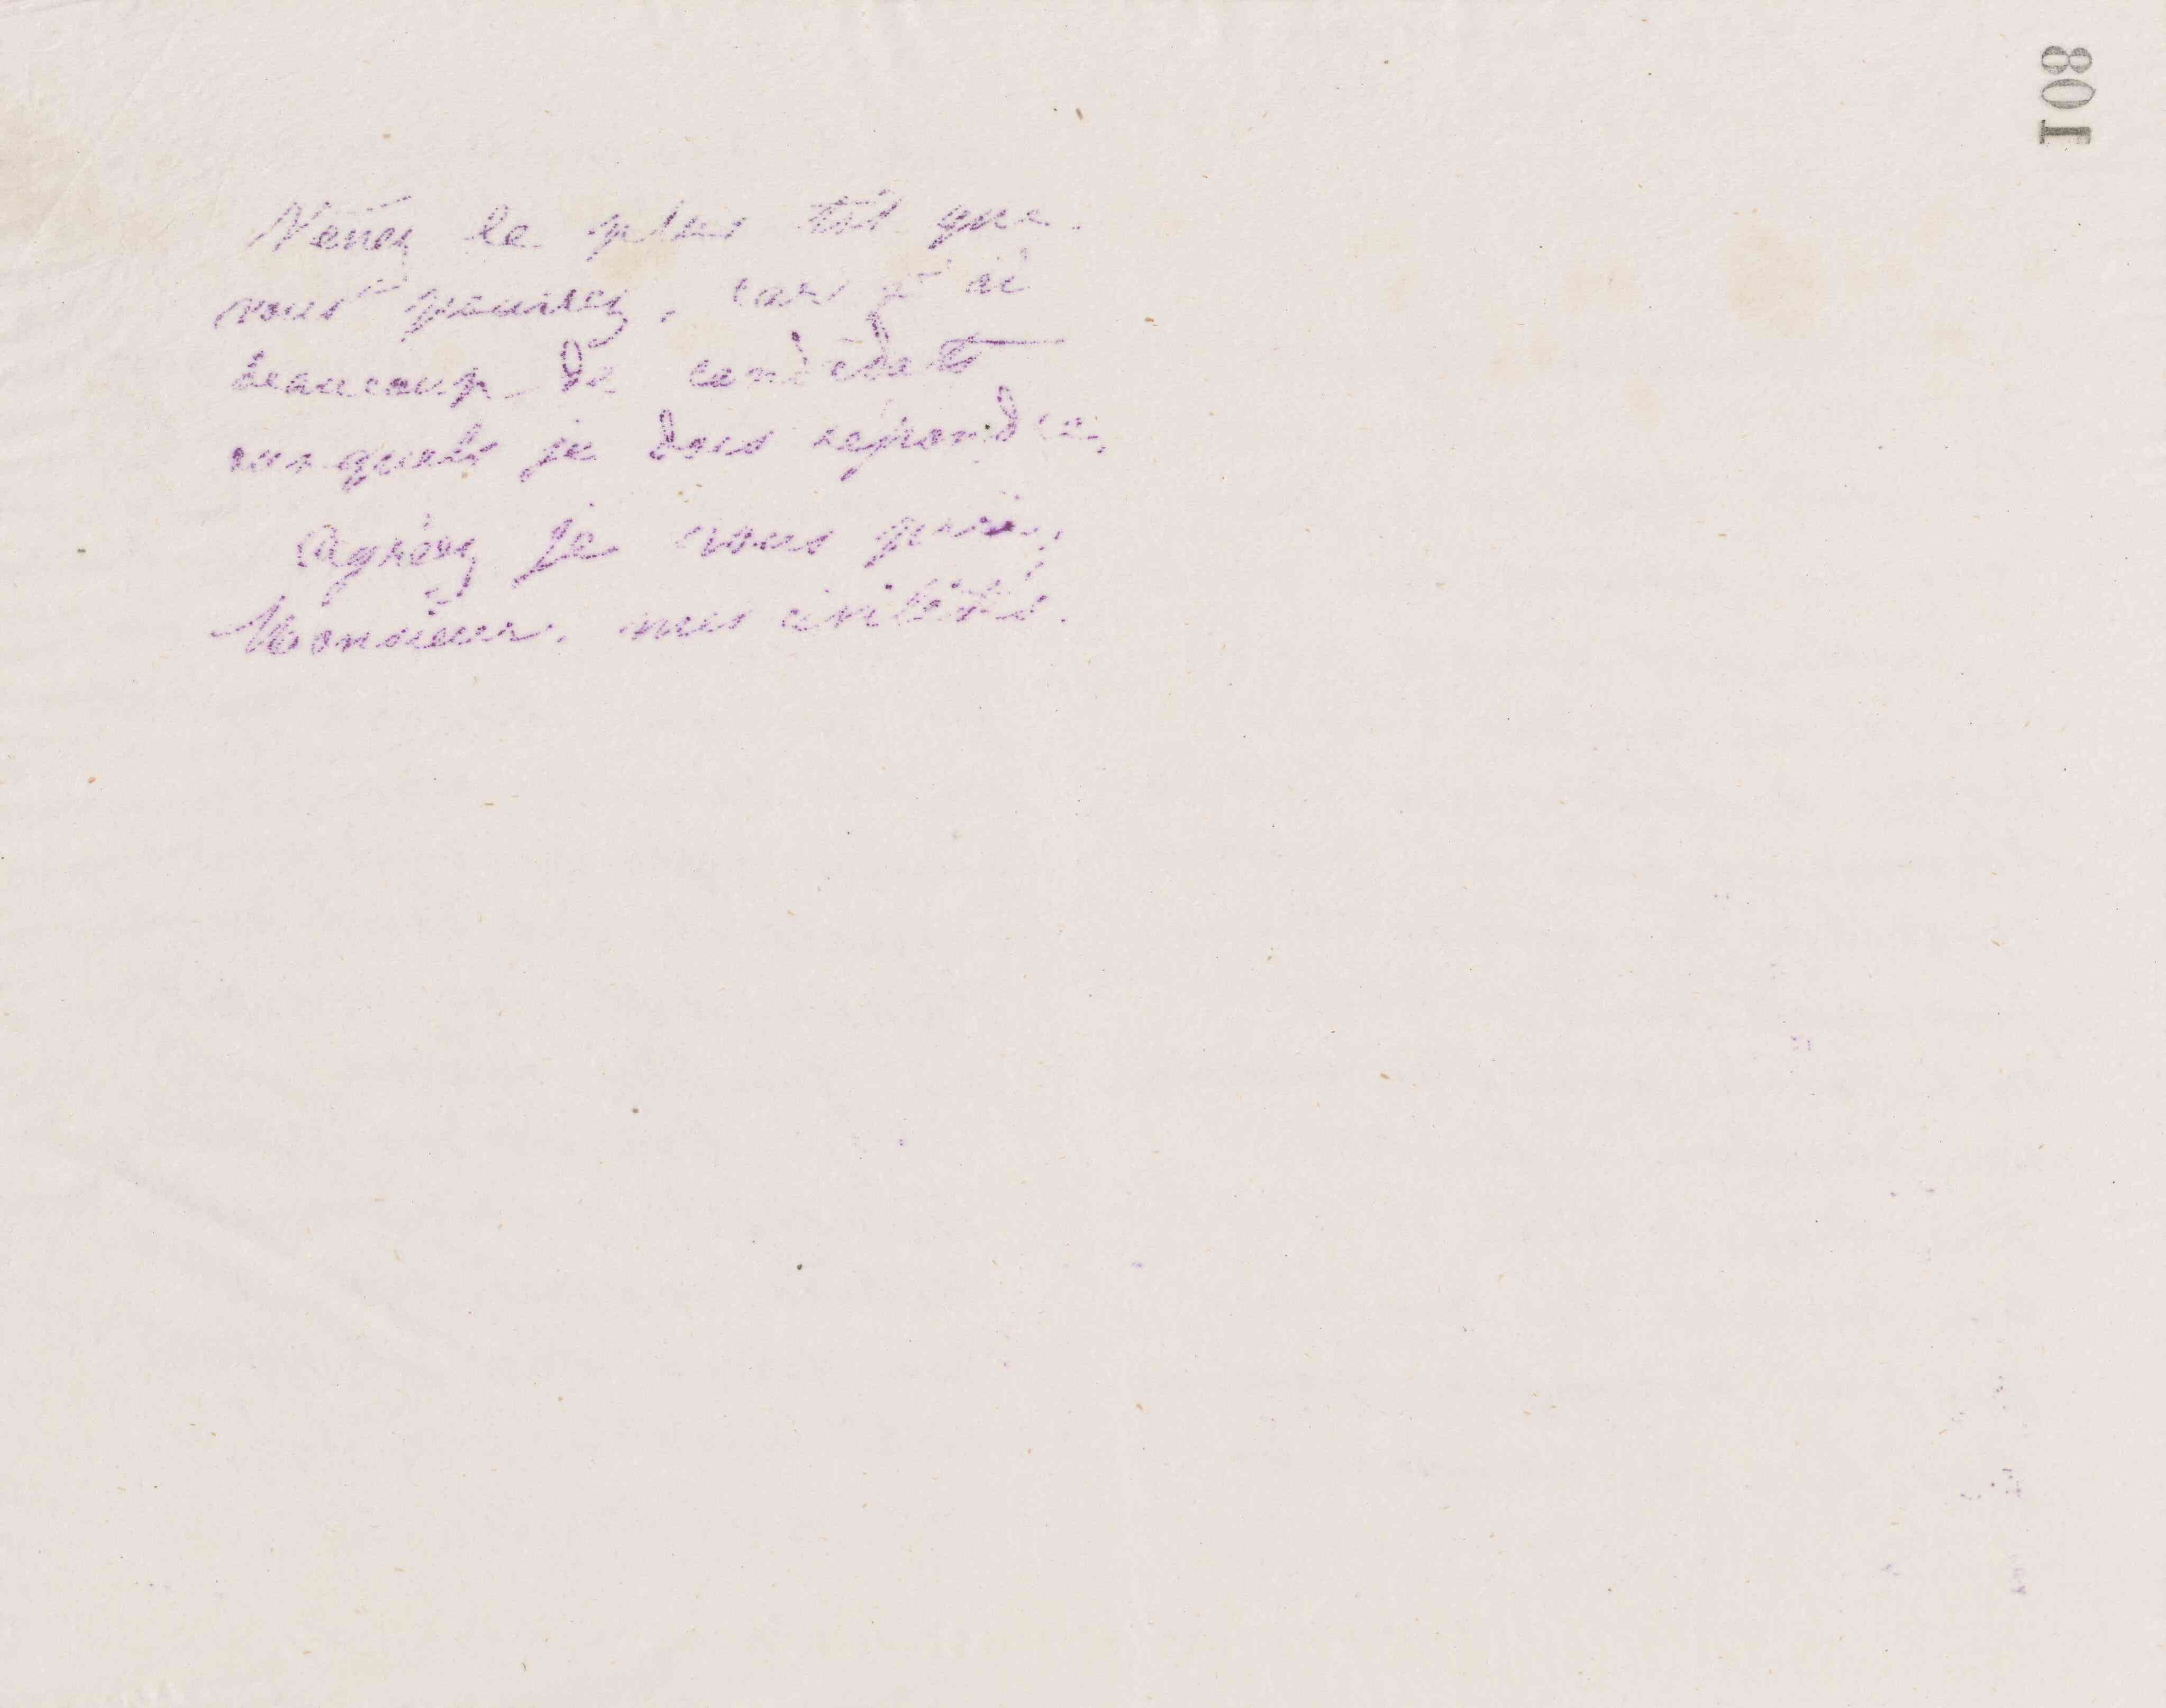 108
Venez le plus tôt que
vous pourrez, car j'ai
beaucoup de candidats
auxquels je dois répondre.
Agréez je vous prie,
Monsieur, mes civilités.